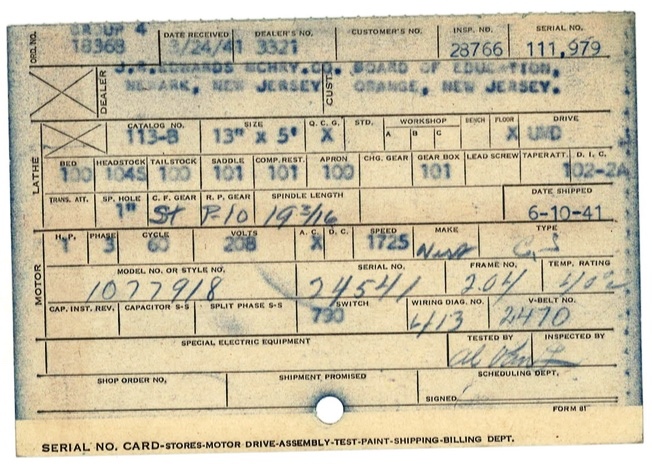 GROUP 4
ORD. NO. 18368 DATE RECEIVED 3/24/41 DEALER'S NO. 3321 CUSTOMER'S NO. INSP. NO. 28766 SERIAL NO. 111,979
DEALER J.R.EDWARDS MCHRY.CO. CUST. BOARD OF EDUCATION,
NEWARK, NEW JERSEY ORANGE, NEW JERSEY.
LATHE
CATALOG NO. SIZE Q. C. G. STD. WORKSHOP A B C BENCH FLOOR DRIVE
113-B 13" x 5' X X UMD
BED HEADSTOCK TAILSTOCK SADDLE COMP. REST. APRON CHG. GEAR GEAR BOX LEAD SCREW TAPER ATT. D. I. C.
100 104S 100 101 101 100 101 102-2A
TRANS. ATT. SP. HOLE C. F. GEAR R. P. GEAR SPINDLE LENGTH DATE SHIPPED
1" St P-10 19 3/16 6-10-41
MOTOR
H. P. PHASE CYCLE VOLTS A. C. D. C. SPEED MAKE TYPE
1 3 60 208 X 1725
MODEL NO. OR STYLE NO. SERIAL NO. FRAME NO. TEMP. RATING
1077918 24541 204 402
CAP. INST. REV. CAPACITOR S-S SPLIT PHASE S-S SWITCH WIRING DIAG. NO. V-BELT NO.
730 413 2470
SPECIAL ELECTRIC EQUIPMENT TESTED BY INSPECTED BY
SHOP ORDER NO. SHIPMENT PROMISED SCHEDULING DEPT.
SIGNED
FORM 81
SERIAL NO. CARD-STORES-MOTOR DRIVE-ASSEMBLY-TEST-PAINT-SHIPPING-BILLING DEPT.